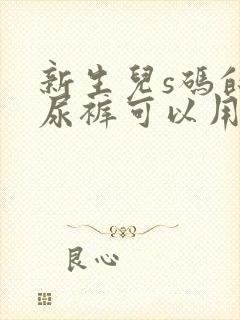 新生兒s碼的
尿褲可以用
良心